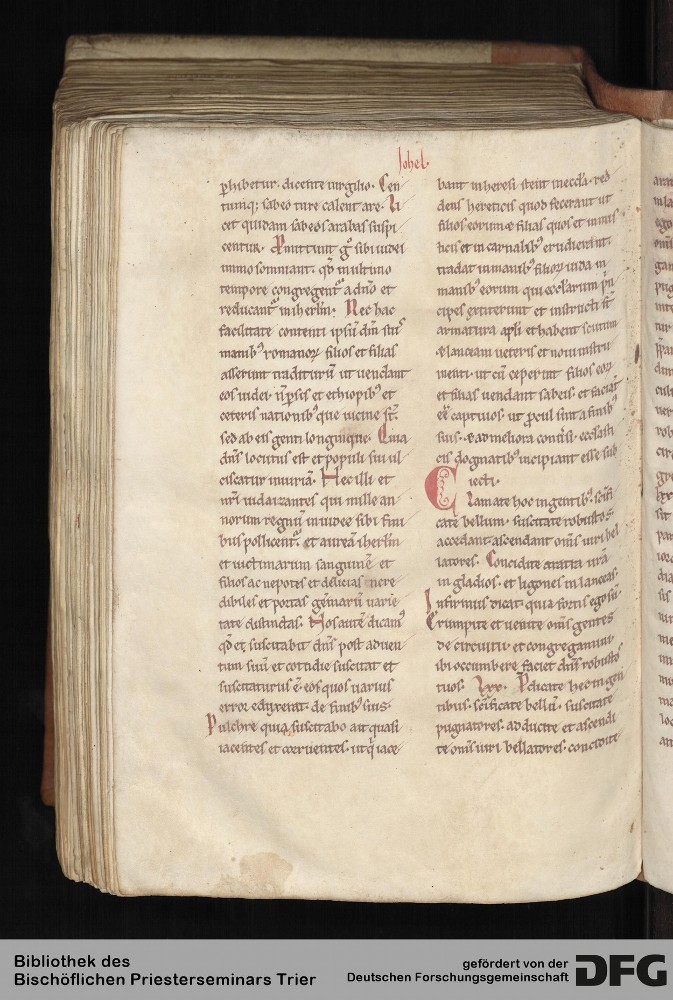 Johel.
phibetur. dicente uirgilio. Cen
tumq; sabeo ture calent are. Li
cet quidam sabeos arabas suspi
centur. Pmittunt g sibi iudei
immo somniant. qd in ultimo
tempore congregent a dno et
reducant in iherlm. Nec hac
facilitate contenti ipsu dm suis
manib romanoꝝ filios et filias
asserunt traditurū ut uendant
eos iudei n psis et ethiopib et
ceteris nationib que uicine st.
sed ab eis genti longinque. Quia
dns locutus est et populi sui ul
ciscatur iniuriā. Hec illi et
nri iudaizantes qui mille an
norum regnū in iudee sibi fini
bus pollicent. et aureā iherlm
et uictimarum sanguinē et
filios ac nepotes et delicias incre
dibiles et portas gēmarū uarie
tate distinctas. Nos autē dicam
qd et suscitabit dns post aduen
tum suū et cotidie suscitat et
suscitaturus ē. eos quos uarius
error eduxerat. de finib suis.
Pulchre quia suscitabo ait quasi
iacentes et corruentes. utq iace
bant in heresi steint in eccla. red
dens hereticis quod fecerant ut
filios eorum & filias quos et in mis
ticis et in carnalib erudierant.
tradat in manib filioꝝ iuda. in
manib eorum qui ecclarum pn
cipes extiterunt et instructi st
armatura apli et habent scutum
& lanceam ueteris et noui instru
menti. ut cū ceperint filios eoꝝ
et filias uendant sabeis. et faciat
eē captiuos. ut pcul sint a finib
suis. & ad meliora conuersi. ecclasti
cis dogmatib incipiant esse sub
iecti.
Clamate hoc in gentib. scifi
cate bellum. suscitate robustos.
accedant ascendant oms uiri bel
latores. Concidite aratra urā
in gladios. et ligones in lanceas.
Infirmus dicat. quia fortis ego sū.
Erumpite et uenite oms gentes
de circuitu. et congregamini.
ibi occumbere faciet dns robusto
tuos. Lxx. Pdicate hec in gen
tibus. scificate bellū. suscitate
pugnatores. adducite et ascendi
te oms uiri bellatores. concidite
Bibliothek des
Bischöflichen Priesterseminars Trier
gefördert von der
Deutschen Forschungsgemeinschaft
DFG